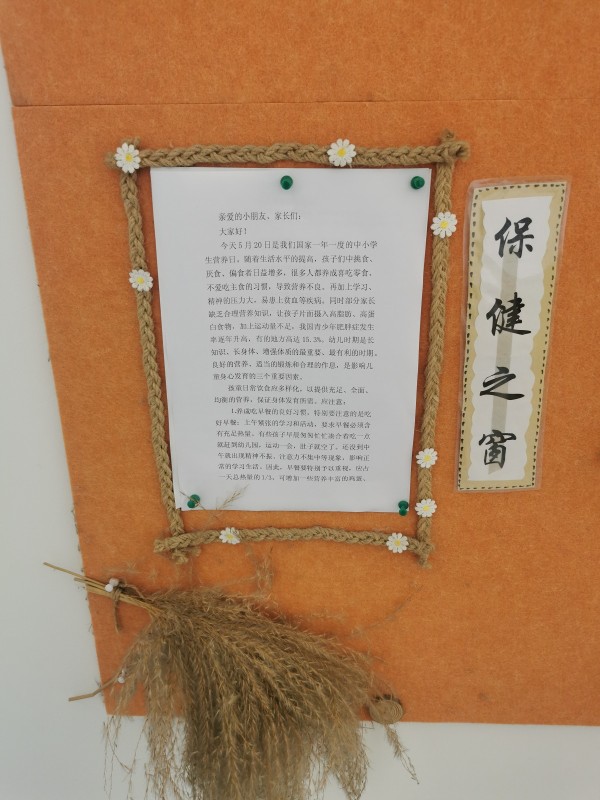 亲爱的小朋友、家长们:
大家好!
今天5月20日是我们国家一年一度的中小学
生营养日。随着生活水平的提高,孩子们中挑食、
厌食、偏食者日益增多,很多人都养成喜吃零食、
不爱吃主食的习惯,导致营养不良。再加上学习、
精神的压力大,易患上贫血等疾病。同时部分家长
缺乏合理营养知识,让孩子片面摄入高脂肪、高蛋
白食物,加上运动量不足,我国青少年肥胖症发生
率逐年升高,有的地方高达15.3%。幼儿时期是长
知识、长身体、增强体质的最重要、最有利的时期。
良好的营养、适当的锻炼和合理的作息,是影响儿
童身心发育的三个重要因素。
孩童日常饮食应多样化,以提供充足、全面、
均衡的营养,保证身体发育所需。应注意:
1.养成吃早餐的良好习惯,特别要注意的是吃
好早餐;上午紧张的学习和活动,要求早餐必须含
有充足热量,有些孩子早晨匆匆忙忙凑合着吃一点
就赶到幼儿园,运动一会,肚子就空了。还没到中
午就出现精神不振、注意力不集中等现象,影响正
常的学习生活。因此,早餐要特别予以重视,应占
一天总热量的1/3,可增加一些营养丰富的鸡蛋、
保健之窗